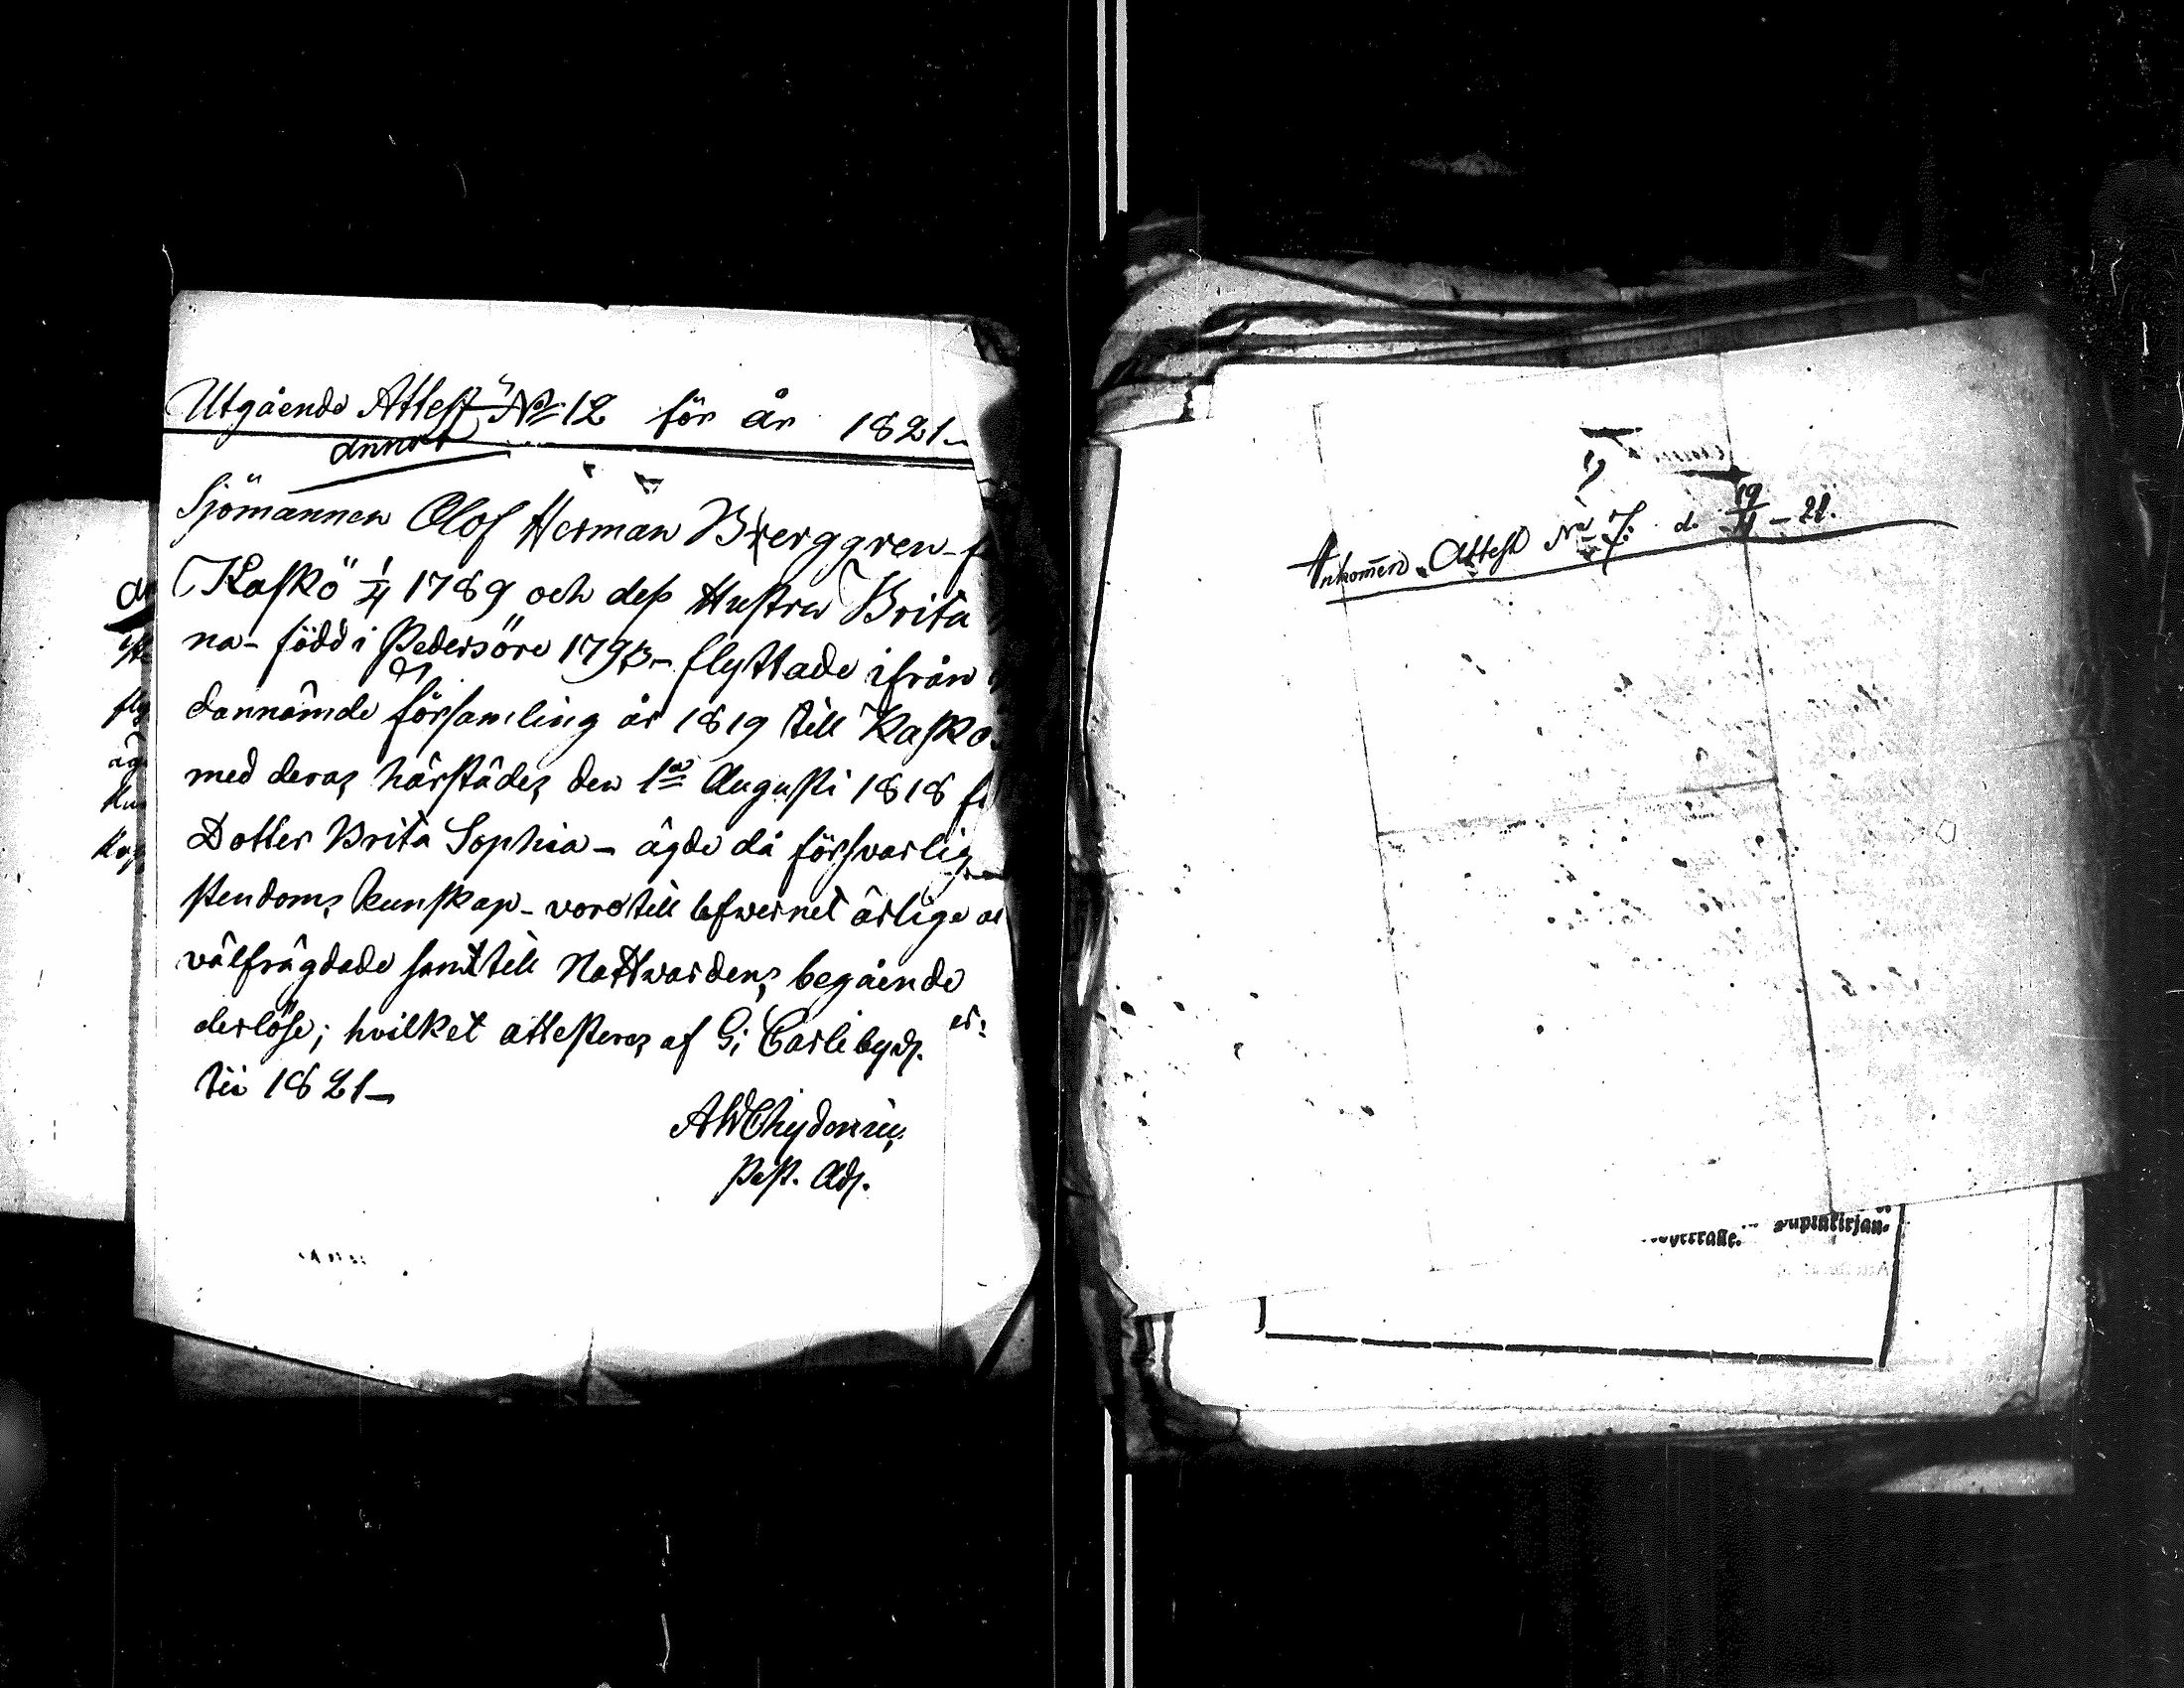 Utgående Attest No 12 för år 1821-
annot
Sjömannen Olof Herman Berggren - f
Kaskö 1/4 1789 och dess Hustru Brita
na - född i Pedersöre 1793 - flyttade ifrån
dannämde församling år 1819 till Kaskö
med deras härstädes den 1a Augusti 1818 f
Dotter Brita Sophia - ägde då försvarlig
stendoms kunskap - voro till lefwernet ärlige oc
välfrägdade samt till Nattwardens begående
derlöse; hvilket attesteras af G: Carleby d.
tii 1821-
AWChydenius
Past. Adj.
Inkommen Attest No 7. d. 19/4 - 21.